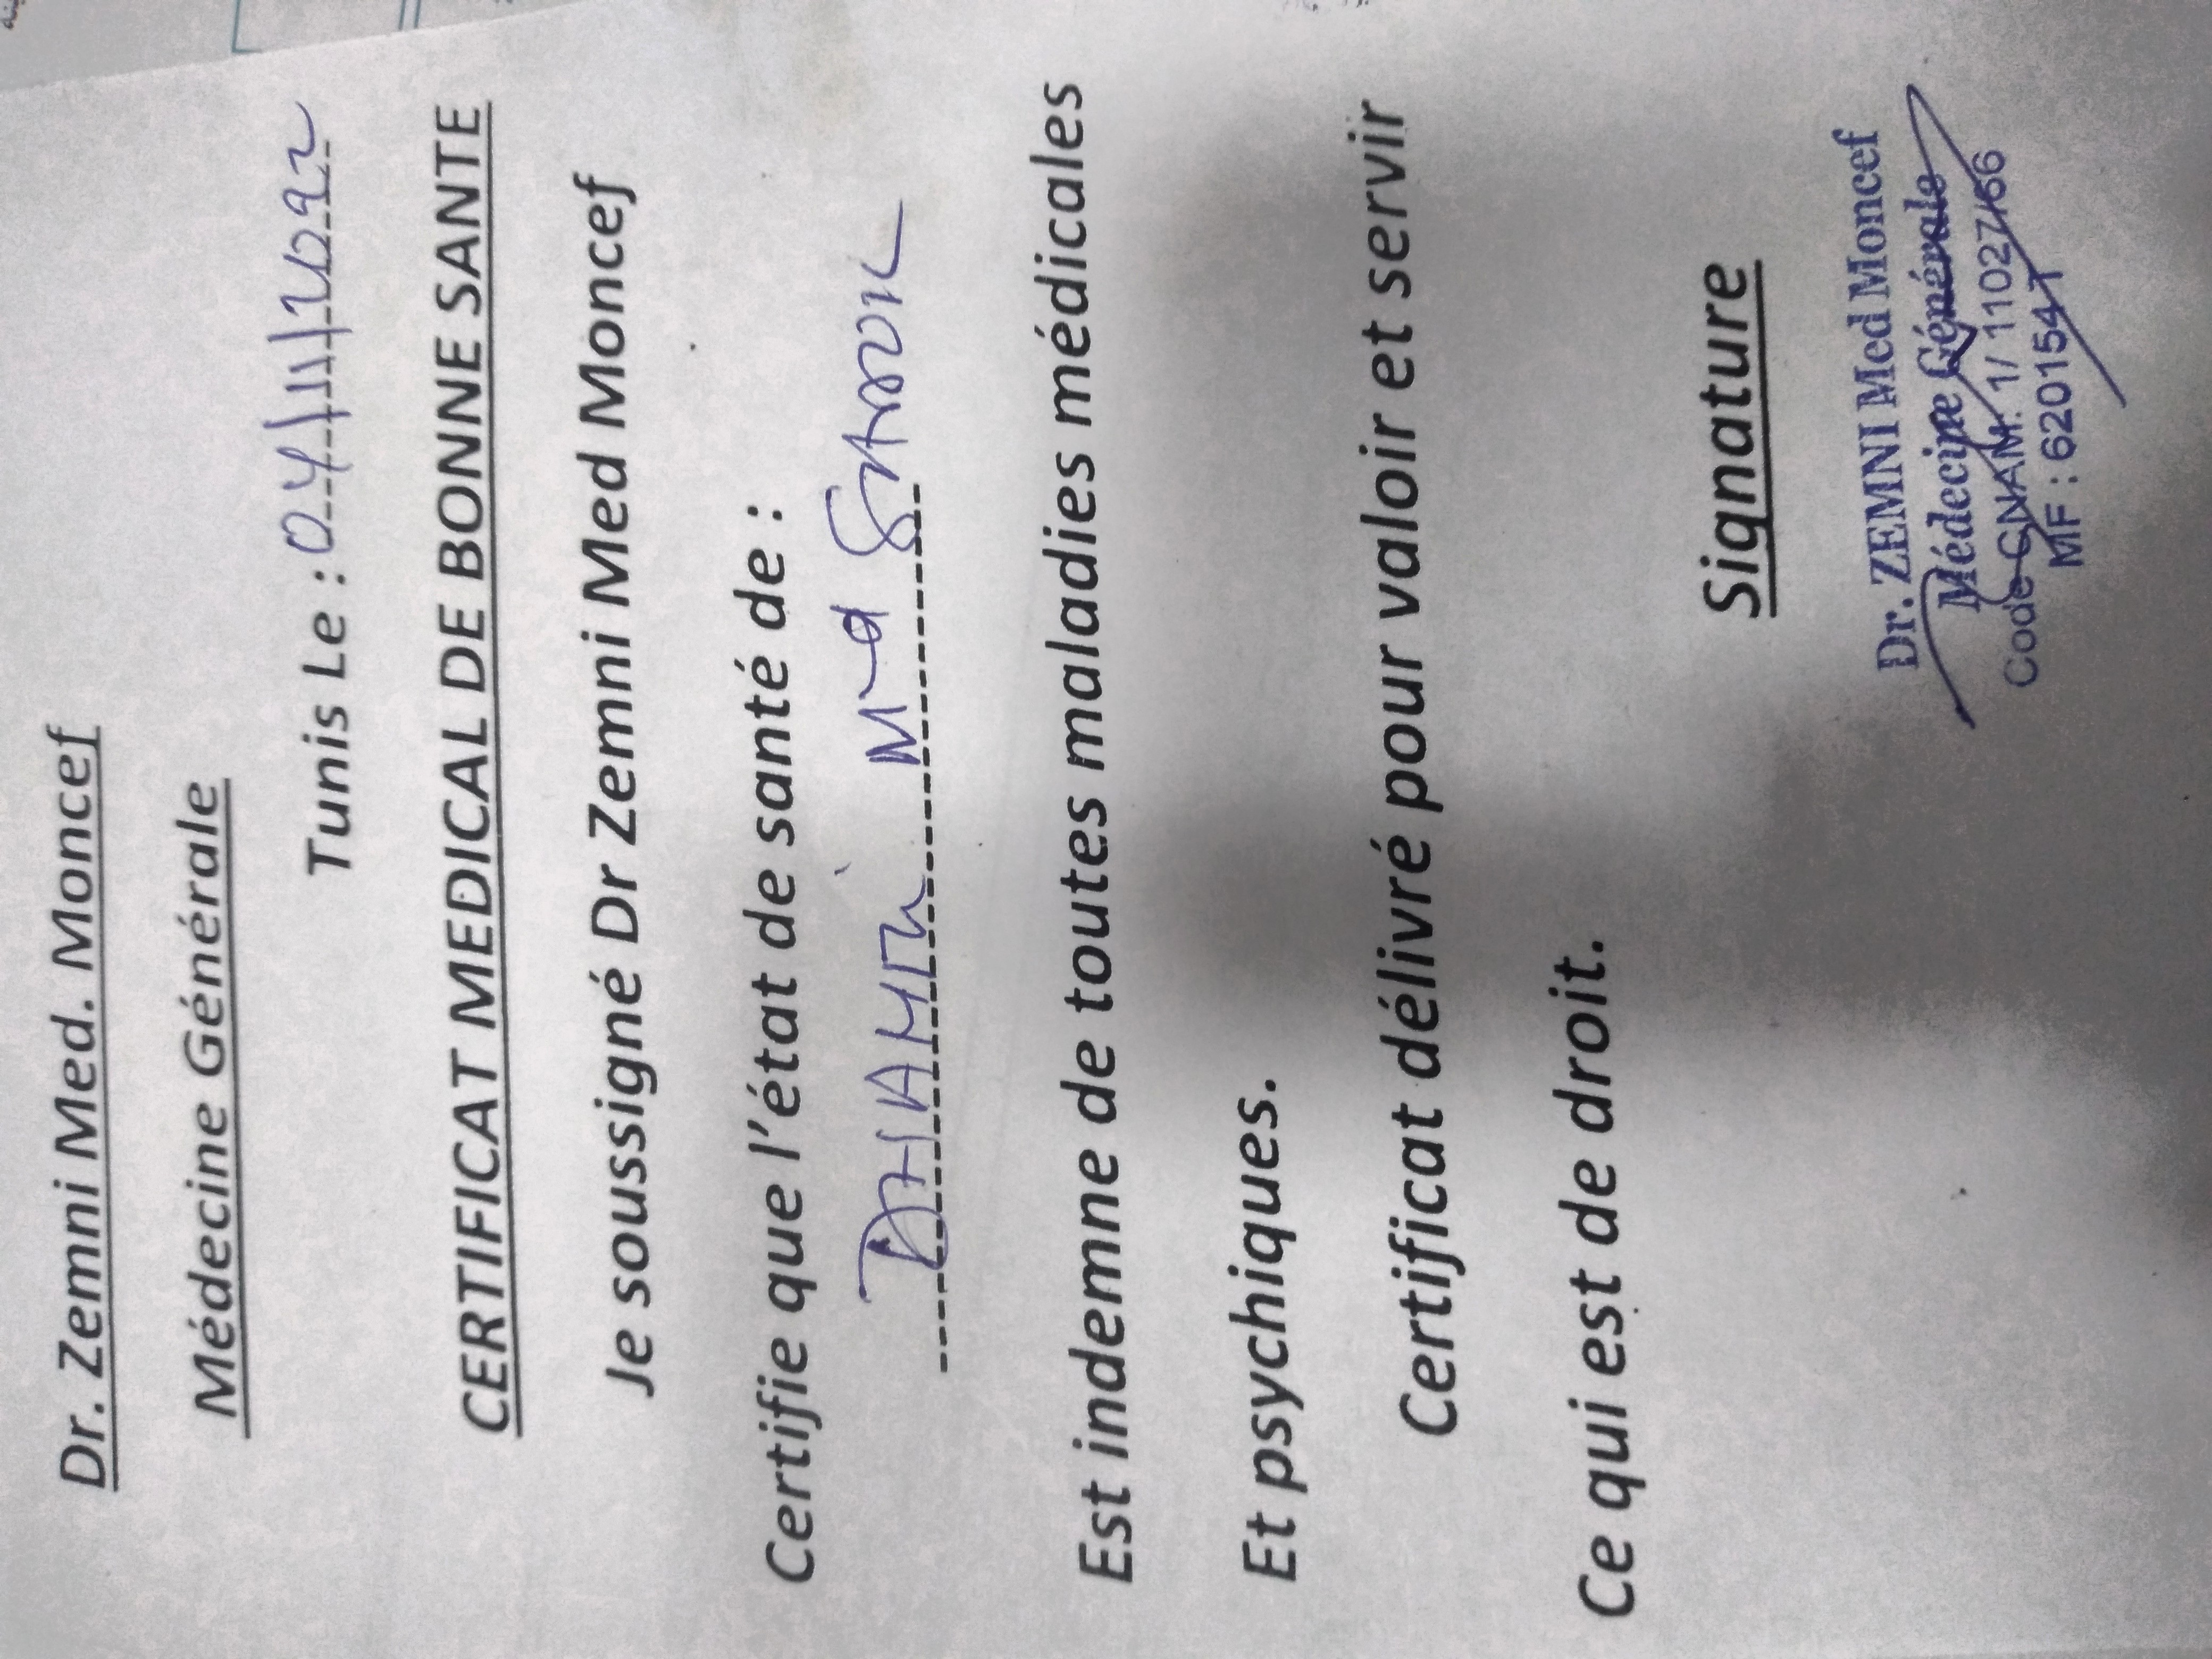 Dr. Zemni Med. Moncef
Médecine Générale
Tunis Le : 04/11/2022
CERTIFICAT MEDICAL DE BONNE SANTE
Je soussigné Dr Zemni Med Moncef
Certifie que l'état de santé de :
Est indemne de toutes maladies médicales
Et psychiques.
Certificat délivré pour valoir et servir
Ce qui est de droit.
Signature
Dr. ZEMNI Med Moncef
Médecine Générale
Code CNAM: 1/ 11027/66
MF : 620154T